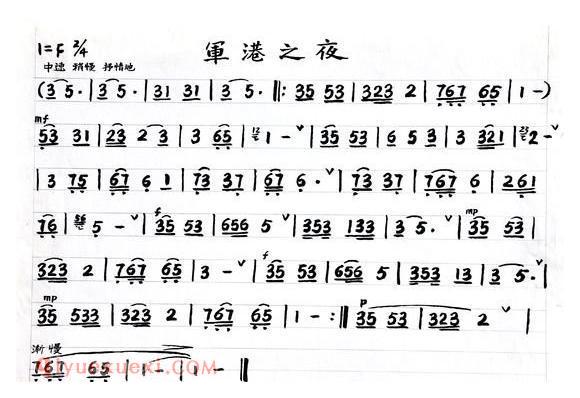 軍港之夜
1=F 2/4
中速 稍慢 抒情地
(3 5·|3 5·|31 31|3 5·‖:35 53|323 2|767 65|1-)
mf
53 31|23 2 3|3 65|1-ˇ|35 53|6 5 3|3 321|2-ˇ
|3 75|67 6 1|73 37|67 6·ˇ|73 37|767 6|261
76|5-ˇ|35 53|656 5ˇ|353 133|3 5·ˇ|35 53|
f mp
323 2|767 65|3-ˇ|35 53|656 5|353 13|3 5·ˇ|
f
mp
35 533|323 2|767 65|1-:‖35 53|323 2ˇ|
p
渐慢
767 65|1-|1-‖
yuexuexi.com